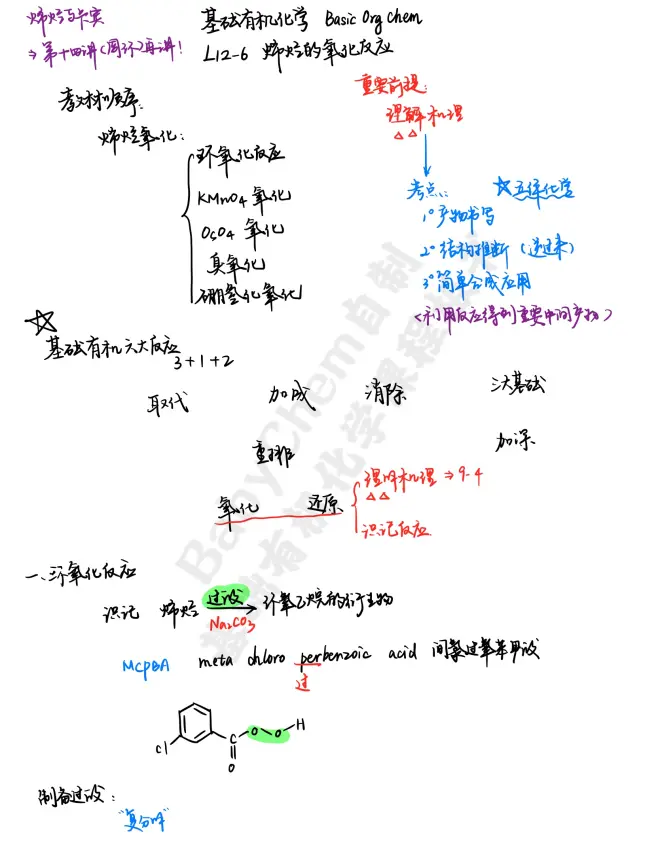 烯烃与卡宾
⇒ 第十四讲(周环)再讲!
基础有机化学 Basic Org chem
L12-6 烯烃的氧化反应
重要前提:
理解机理
△△
教材顺序:
烯烃氧化:
环氧化反应
KMnO4 氧化
OsO4 氧化
臭氧化
硼氢化氧化
考点: ☆立体化学
1° 产物书写
2° 结构推断 (逆过来)
3° 简单合成应用
<利用反应得到重要中间产物>
☆
基础有机六大反应
3+1+2
取代 加成 消除 三大基础
重排 加深
氧化 还原
理解机理 ⇒ 9-4
△△
识记反应
一、环氧化反应
识记 烯烃 过酸 环氧乙烷的衍生物
Na2CO3
McpBA meta chloro perbenzoic acid 间氯过氧苯甲酸
过
Cl C O O H
O
制备过酸:
"复分解"
BabyChem自制
基础有机化学课程